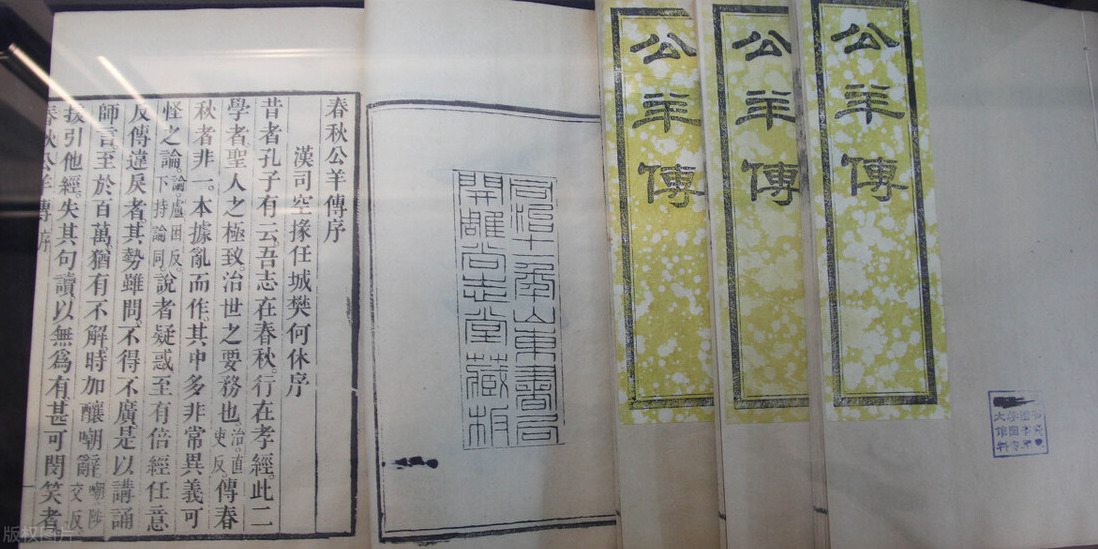 公羊傳
公羊傳
公羊傳
同治十一年山東書局
開雕尚志堂藏板
春秋公羊傳序
漢司空掾任城樊何休序
昔者孔子有云。吾志在春秋。行在孝經。此二
學者。聖人之極致。治世之要務也。治。直吏反。傳春
秋者非一。本據亂而作。其中多非常異義可
怪之論。論。盧困反。下持論同。說者疑惑至有倍經任意
反傳違戾者。其勢雖問。不得不廣。是以講誦
師言。至於百萬。猶有不解。時加釀嘲辭。嘲。陟交反
援引他經。失其句讀。以無爲有。甚可閔笑者
春秋公羊傳序
版权图片